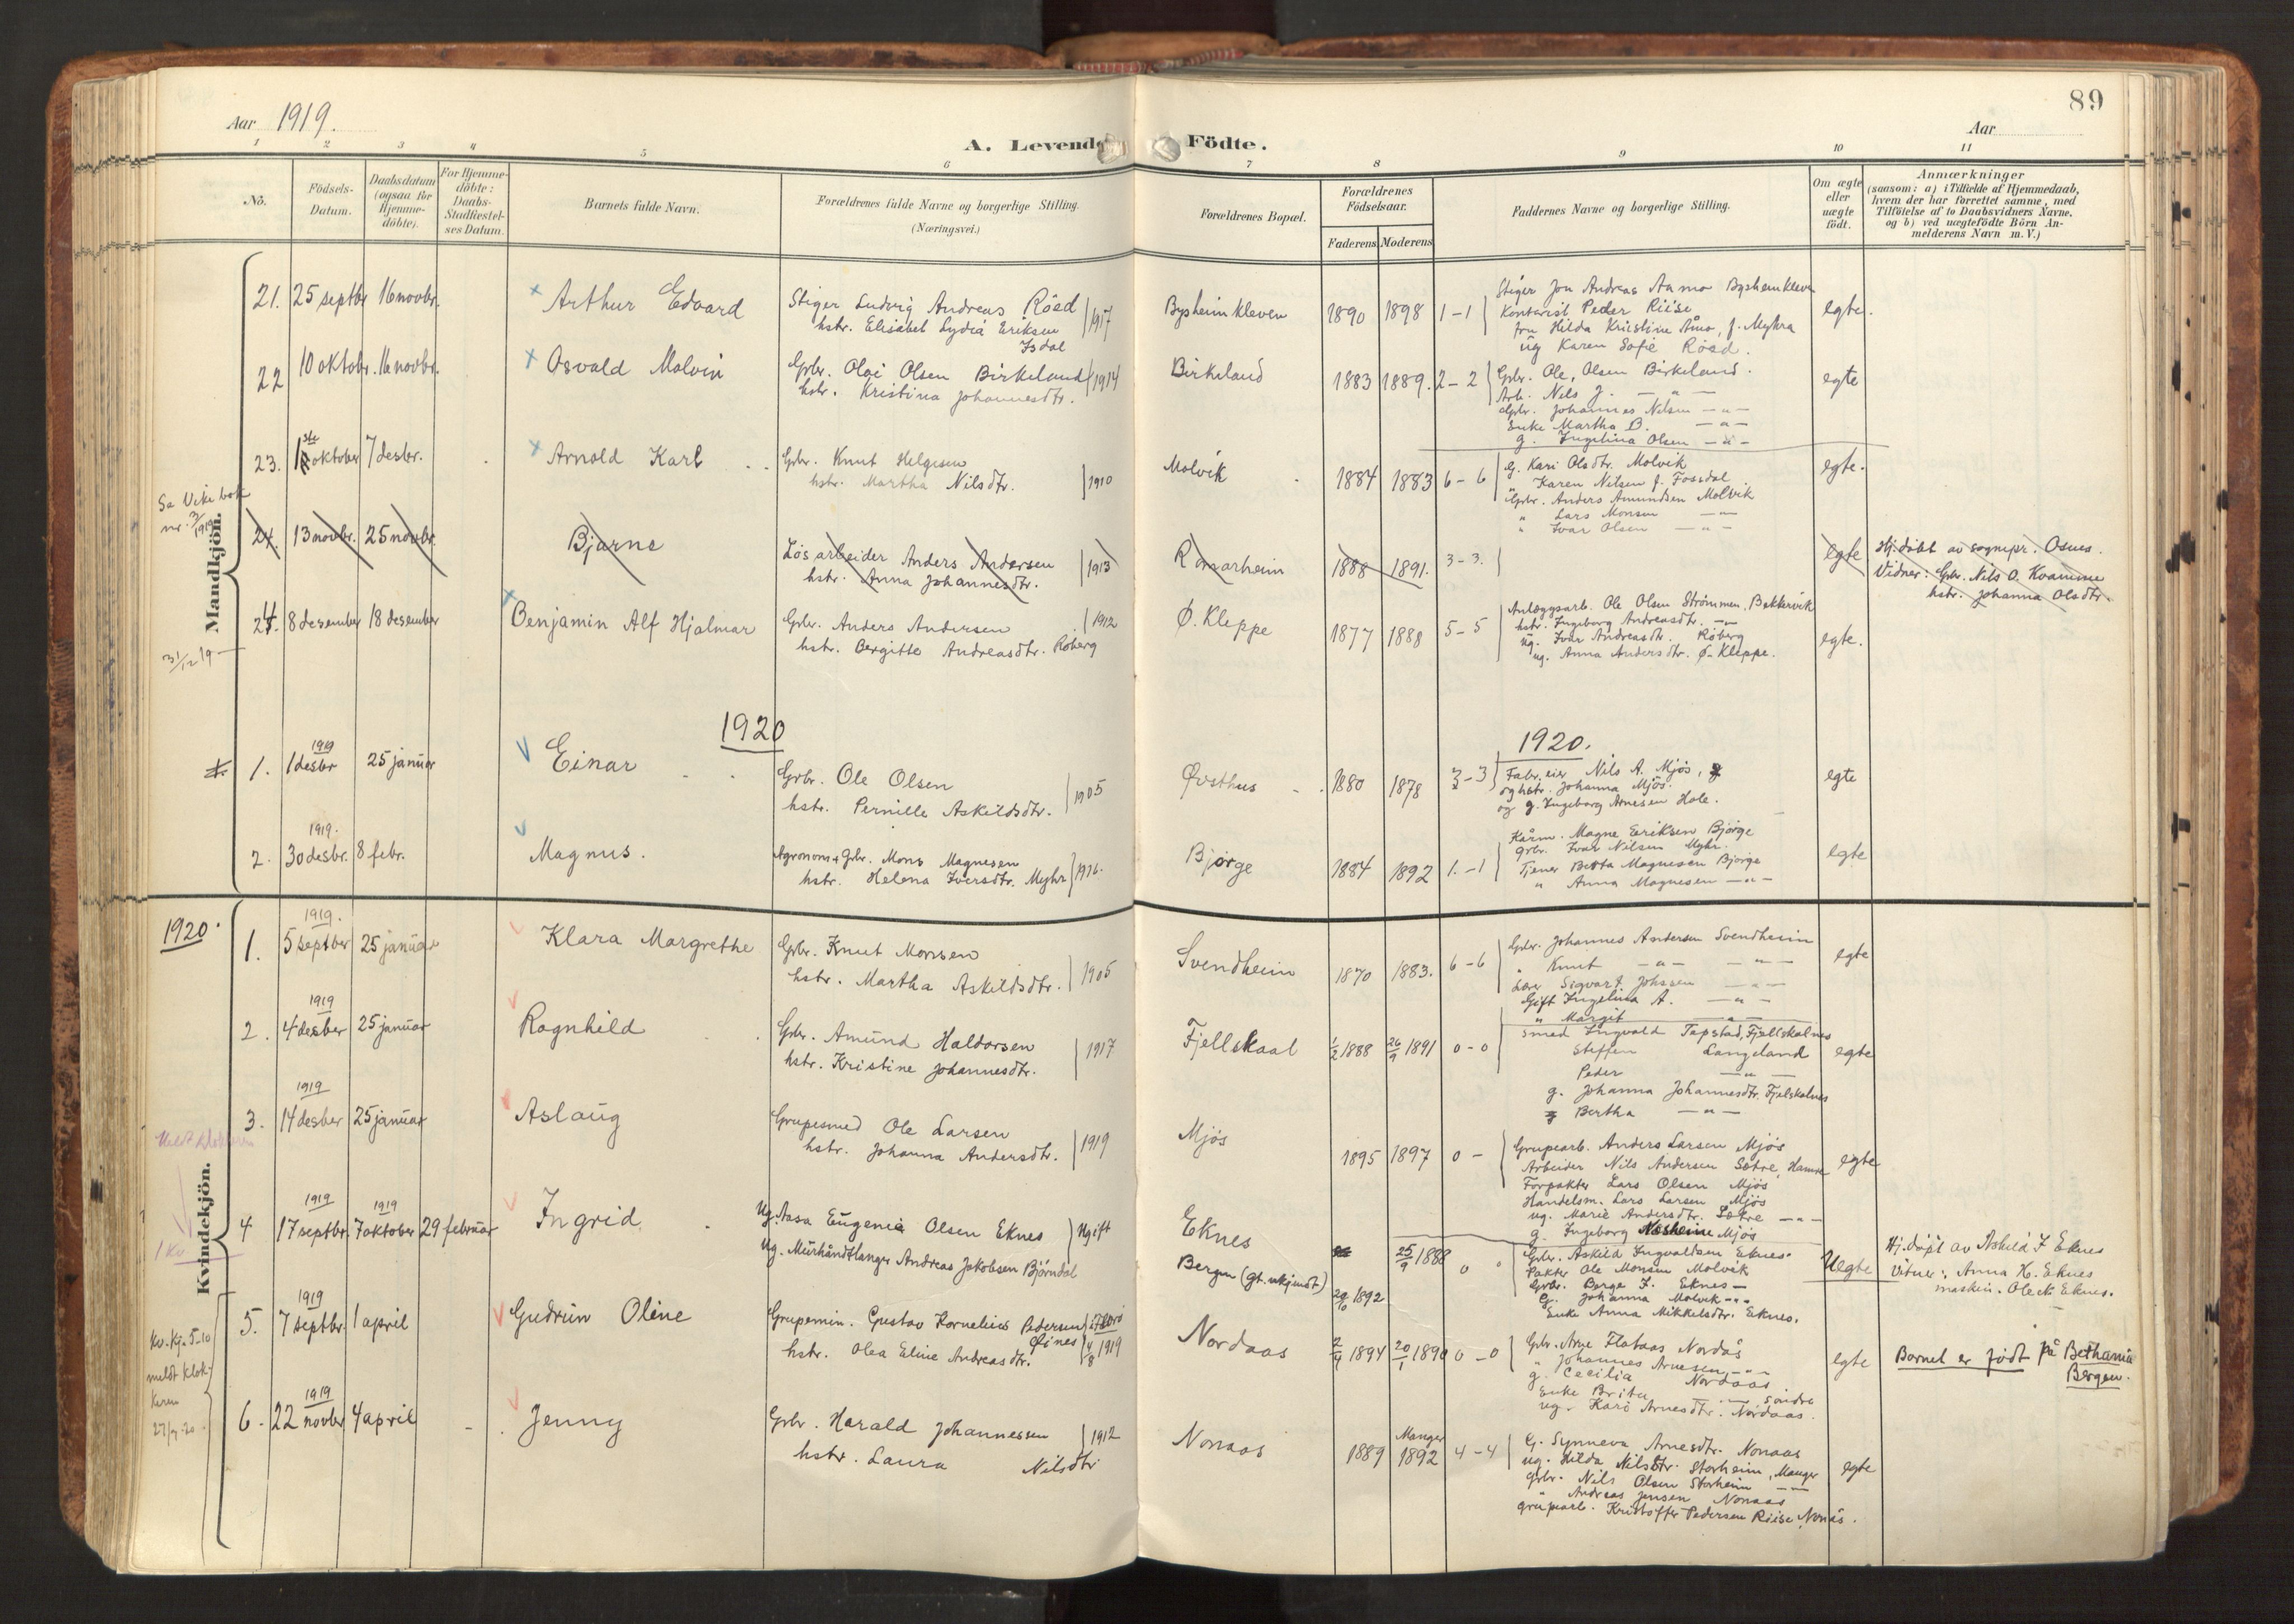 89
Aar 1919.
Aar
A. Levende Födte.
1 2 3 4 5 6 7 8 9 10 11
No.
Födsels-Datum.
Daabsdatum (ogsaa for Hjemme-döbte).
For Hjemme-döbte: Daabs-Stadfæstel-ses Datum.
Barnets fulde Navn.
Forældrenes fulde Navne og borgerlige Stilling.
(Næringsvei.)
Forældrenes Bopæl.
Forældrenes Födselsaar.
Faderens Moderens
Faddernes Navne og borgerlige Stilling.
Om ægte eller uægte födt.
Anmærkninger
(saasom: a) i Tilfælde af Hjemmedaab,
hvem der har forrettet samme, med
Tilföielse af to Daabsvidners Navne,
og b) ved uægtefödte Börn An-
melderens Navn m. V.)
Mandkjön.
21. 25 septbr 16 novbr. Arthur Edvard
Stiger Ludvig Andreas Röed
hstr. Elisabet Lydia Eriksen
Isdal
1917
Bysheimkleven 1890 1898 1-1
Stiger Jon Andreas Aamo Bysheimkleven
Kontorist Peder Riise
fru Hilda Kristine Åmo, f. Myhra
ug Karen Sofie Röed.
egte.
22 10 oktobr. 16 novbr. Osvald Malvin
Grbr. Olai Olsen Birkeland
hstr. Kristina Johannesdtr.
1914
Birkeland 1883 1889. 2-2
Grbr. Ole, Olsen Birkeland.
Arb. Nils J. —"—
Grbr. Johannes Nilsen —"—
Enke Martha B. —"—
g. Ingelina Olsen —"—
egte
23. 1ste oktober 7 desbr. Arnold Karl
Grbr. Knut Helgesen
hstr. Martha Nilsdtr.
1910
Molvik 1884 1883 6-6
G. Kari Olsdtr. Molvik
" Karen Nilsen f. Fossdal
Grbr. Anders Amundsen Molvik
" Lars Monsen —"—
" Ivar Olsen —"—
egte.
24. 13 novbr. 25 novbr. Bjarne
Lös arbeider Anders Andersen
hstr. Anna Johannesdtr.
1913
Romarheim 1888 1891. 3-3.
egte
Hj. döbt av sognepr. Osnes.
Vidner: Grbr. Nils O. Kvamme
hstr. Johanna Olsdtr.
24. 8 desember 18 desember Benjamin Alf Hjalmar
Grbr. Anders Andersen
hstr. Bergitte Andreasdtr. Röberg
1912
Ø. Kleppe 1877 1888 5-5
Anlægsarb. Ole Olsen Strömmen, Bakkervik
hstr. Ingeborg Andreasdtr. —"—
ug. Ivar Andreasdtr. Röberg
ug. Anna Andersdtr. Ø-Kleppe.
egte.
31/12 19
1920
1920.
1. 1919 1 desbr 25 januar Einar
Grbr. Ole Olsen
hstr. Pernille Askildsdtr.
1905
Øvsthus 1880 1878 3-3
Fabr. eier Nils A. Mjös,
og hstr. Johanna Mjös.
og g. Ingeborg Arnesen Hole.
egte
2. 1919. 30 desbr. 8 febr. Magnus.
Agronom & Grbr. Mons Magnesen
hstr. Helena Iversdtr. Myhr
1916.
Bjørge 1884 1892 1.-1
Kårm. Magne Eeriksen Bjørge
grbr. Ivar Nilsen Myhr.
Tjener Berta Magnesen Bjørge
" Anna Magnesen —"—
egte
1920.
Kvindekjön.
1. 1919. 5 septber 25 januar Klara Margrethe
Grbr. Knut Monsen
hstr. Martha Askildsdtr.
1905
Svendheim 1870 1883. 6-6
Grbr. Johannes Andersen Svendheim
" Knut —"— —"—
Lærer Sigvart Johssen —"—
Gift Ingelina A. —"—
" Margit —"—
egte
2. 1919 4 desber 25 januar Ragnhild
Grbr. Amund Haldorsen
hstr. Kristine Johannesdtr.
1917
Fjellskaal 1/2 1888 26/9 1891 0-0
Smed Ingvald Tepstad, Fjellskalnes
Steffen Langeland
Peder —"—
g. Johanna Johannesdtr. Fjelskalnes
g Bertha —"—
egte
3. 1919 14 desber 25 januar Aslaug
Grupesmed Ole Larsen
hstr. Johanna Andersdtr.
1919
Mjös 1895 1897 0-
Grupearb. Anders Larsen Mjös
Arbeider Nils Andersen Sætre, Hamre
Forpakter Lars Olsen Mjös
Handelsm. Lars Larsen Mjös
ug. Marie Andersdtr. Sætre —"—
g. Ingeborg Mjös
egte
4 1919 17 septbr. 1919 7 oktober 29 februar Ingrid.
Ug. Aasa Eugenia Olsen Eknes
Ug. Murhåndtlanger Andreas Jakobsen Björndal
Ugift
Eknes
Bergen (gt. ukjendt)
25/9 1888
1892
0 0
Grbr. Askild Ingvaldsen Eknes.
Pakter Ole Monsen Molvik
Grbr. Børge I. Eknes —
G. Johanna Molvik —"—
Enke Anna Mikkelsdtr. Eknes.
Uegte
Hj. døpt av Askild I Eknes
Vitner: Anna H. Eknes
maskin. Ole A. Eknes.
5. 1919 7 septbr. 1 april Gudrun Oline
Grupemin. Gustav Kornelius Pedersen
hstr. Olea Eline Andreasdtr.
4/8 1919
Nordaas 2/4 1894 20/1 1890 0-0
Grbr. Arne Flataas Nordås
" Johannes Arnesen —"—
g. Cecilia Nordaas
Enke Brita —"— Söndre
ug. Kari Arnesdtr. Nordaas.
egte
Barnet er født på Bethania
Bergen.
6. 1919 22 novbr 4 april Jenny
Grbr. Harald Johannessen
hstr. Laura Nilsdtr
1912
Nonaas 1889 Manger 1892 4-4
G. Synneva Arnesdtr. Nonaas
ug. Hilda Nilsdtr. Storheim, Manger
grbr. Nils Olsen Storheim —"—
" Andreas Jensen Nonaas
Grupearb. Kristoffer Pedersen Riise, Nonås.
egte
Kv. Kj. 5-10
meldt Klok-
keren